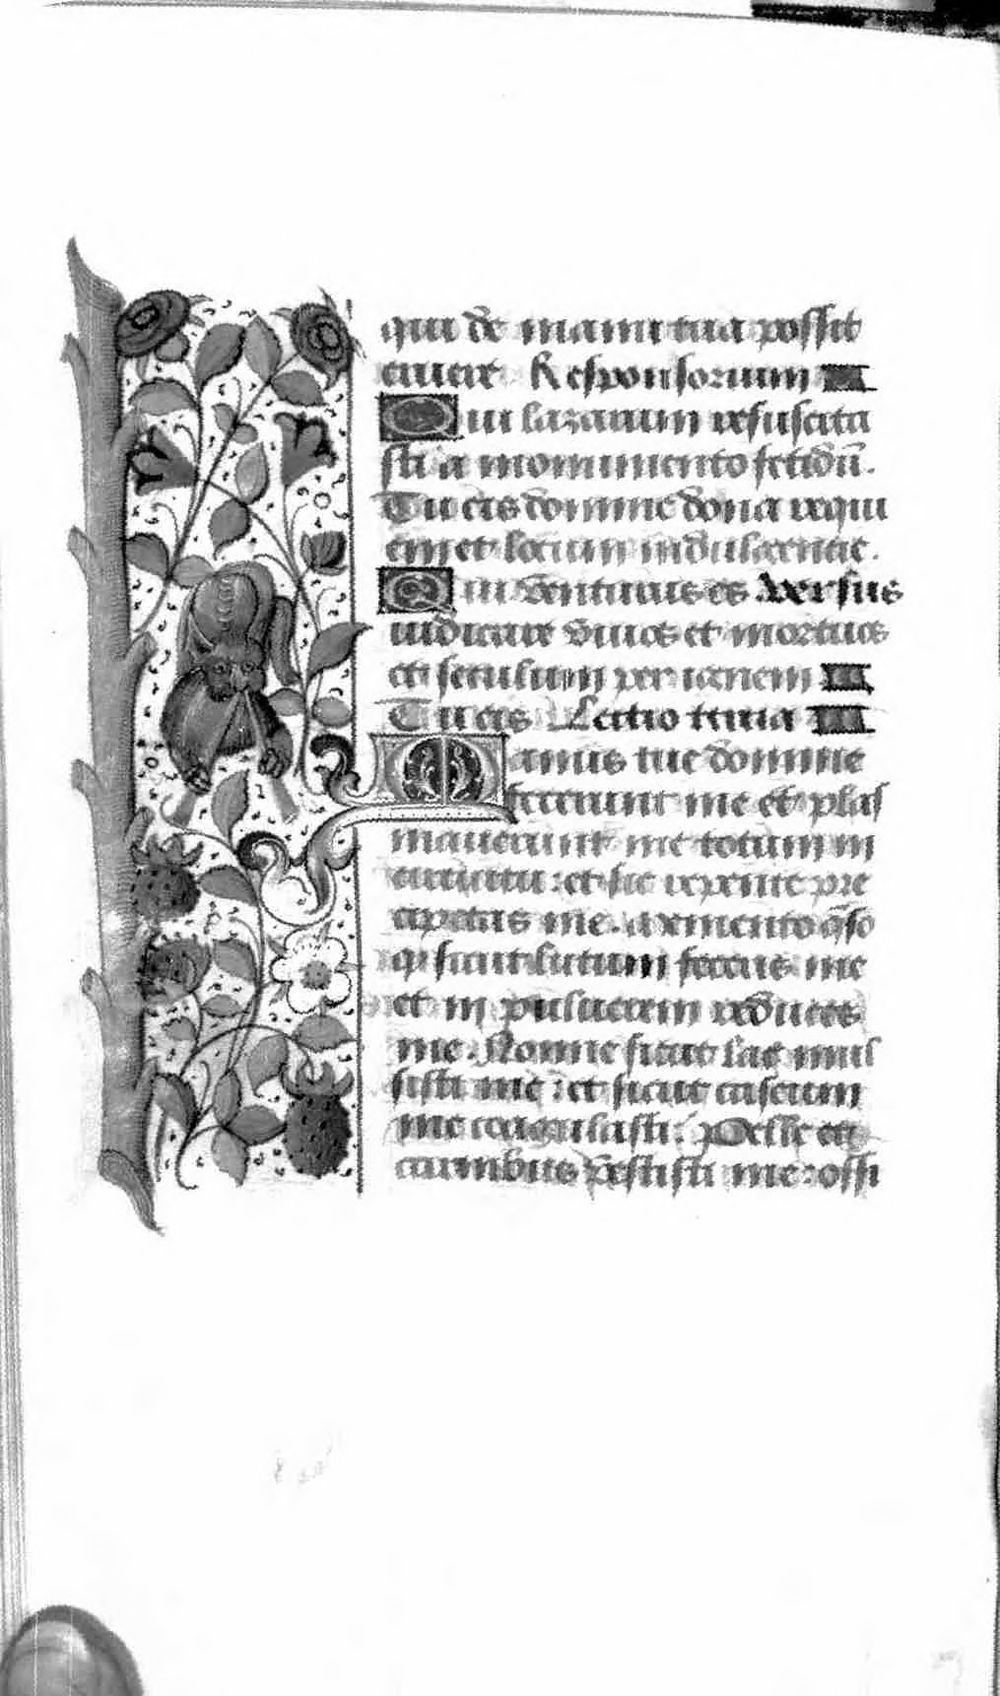 qui de manu tua possit
eruere Responsorium
Qui lazarum resuscita
sti a monumento fetidū.
Tu eis domine dona requi
em et locum indulgentie.
Qui venturus es Versus
iudicare vivos et mortuos
et seculum per ignem
Tu eis Lectio tercia
Manus tue domine
fecerunt me et plas
maverunt me totum in
circuitu: et sic repente pre
cipitas me. memento q̄so
q̄ sicut lutum feceris me
et in pulverem reduces
me. Nonne sicut lac mul
sisti me: et sicut caseum
me coagulasti. Pelle et
carnibus vestisti me: ossi